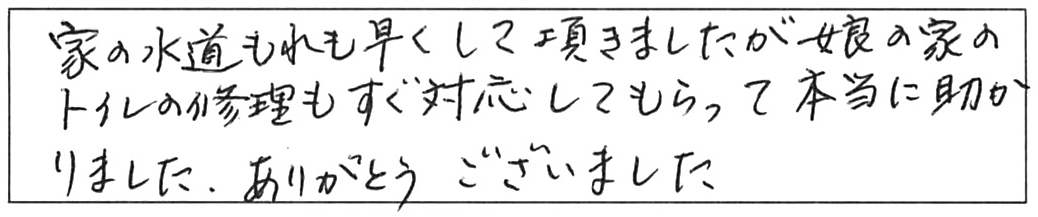 家の水道もれも早くして頂きましたが娘の家の
トイレの修理もすぐ対応してもらって本当に助か
りました. ありがとう ございました